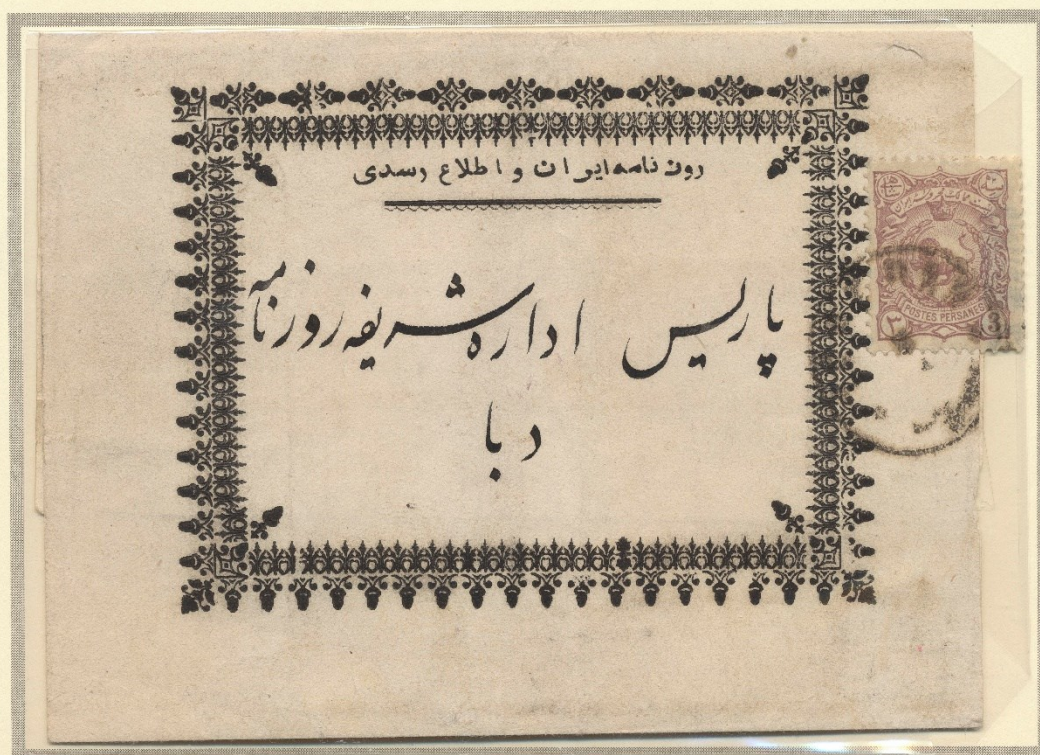 روزنامه ایران و اطلاع رسدی
پاریس اداره شریفه روزنامه
دبا
POSTES PERSANES
۳ 3